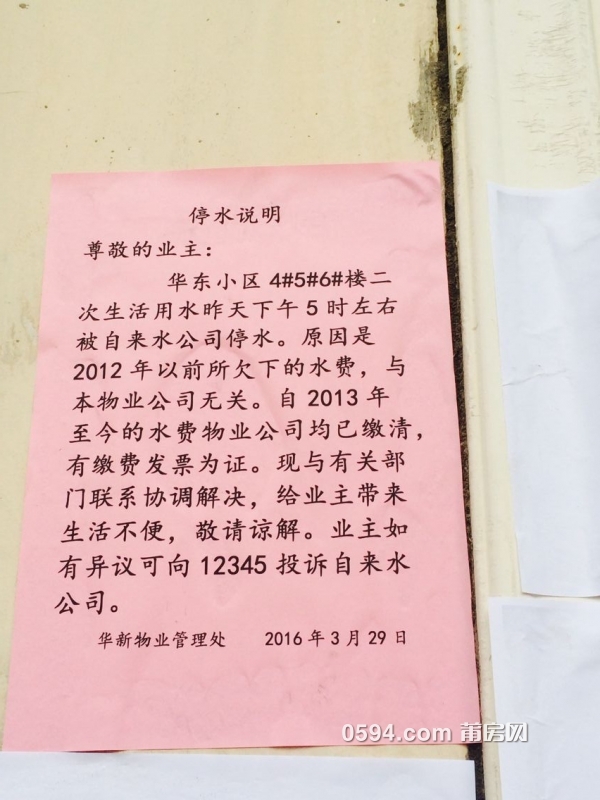 停水说明
尊敬的业主：
华东小区 4#5#6#楼二
次生活用水昨天下午 5 时左右
被自来水公司停水。原因是
2012 年以前所欠下的水费，与
本物业公司无关。自 2013 年
至今的水费物业公司均已缴清，
有缴费发票为证。现与有关部
门联系协调解决，给业主带来
生活不便，敬请谅解。业主如
有异议可向 12345 投诉自来水
公司。
华新物业管理处 2016 年 3 月 29 日
0594.com 莆房网